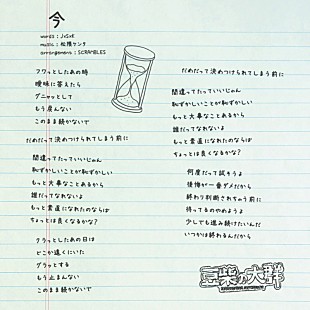 今
words : JxSxK
music : 松隈ケンタ
arrangement : SCRAMBLES
フワっとしたあの時
曖昧に答えたら
グニャッとして
もう戻んない
このまま続かないで
だめだって決めつけられてしまう前に
間違ってたっていいじゃん
恥ずかしいことが恥ずかしい
もっと大事なことあるから
誰だってなれないよ
もっと素直になれたのならば
ちょっとは良くなるかな?
クラっとしたあの日は
どこか遠くにいた
グラっとする
もう止まんない
このまま続かないで
だめだって決めつけられてしまう前に
間違ってたっていいじゃん
恥ずかしいことが恥ずかしい
もっと大事なことあるから
誰だってなれないよ
もっと素直になれたのならば
ちょっとは良くなるかな?
何度だって試そうよ
後悔が一番ダメだから
終わり判断されちゃう前に
待ってるのやめようよ
少しでも進み続けたいんだ
いつかは終わるんだから
豆柴の大群